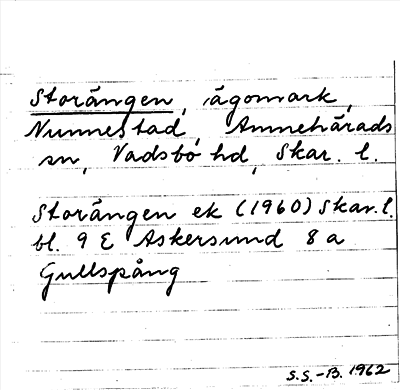 Storängen, ägomark,
Nunnestad, Amnehärads
sn, Vadsbo hd, Skar. l.
Storängen ek (1960) Skar. l.
bl. 9 E Askersund 8 a
Gullspång
S.S.-B. 1962